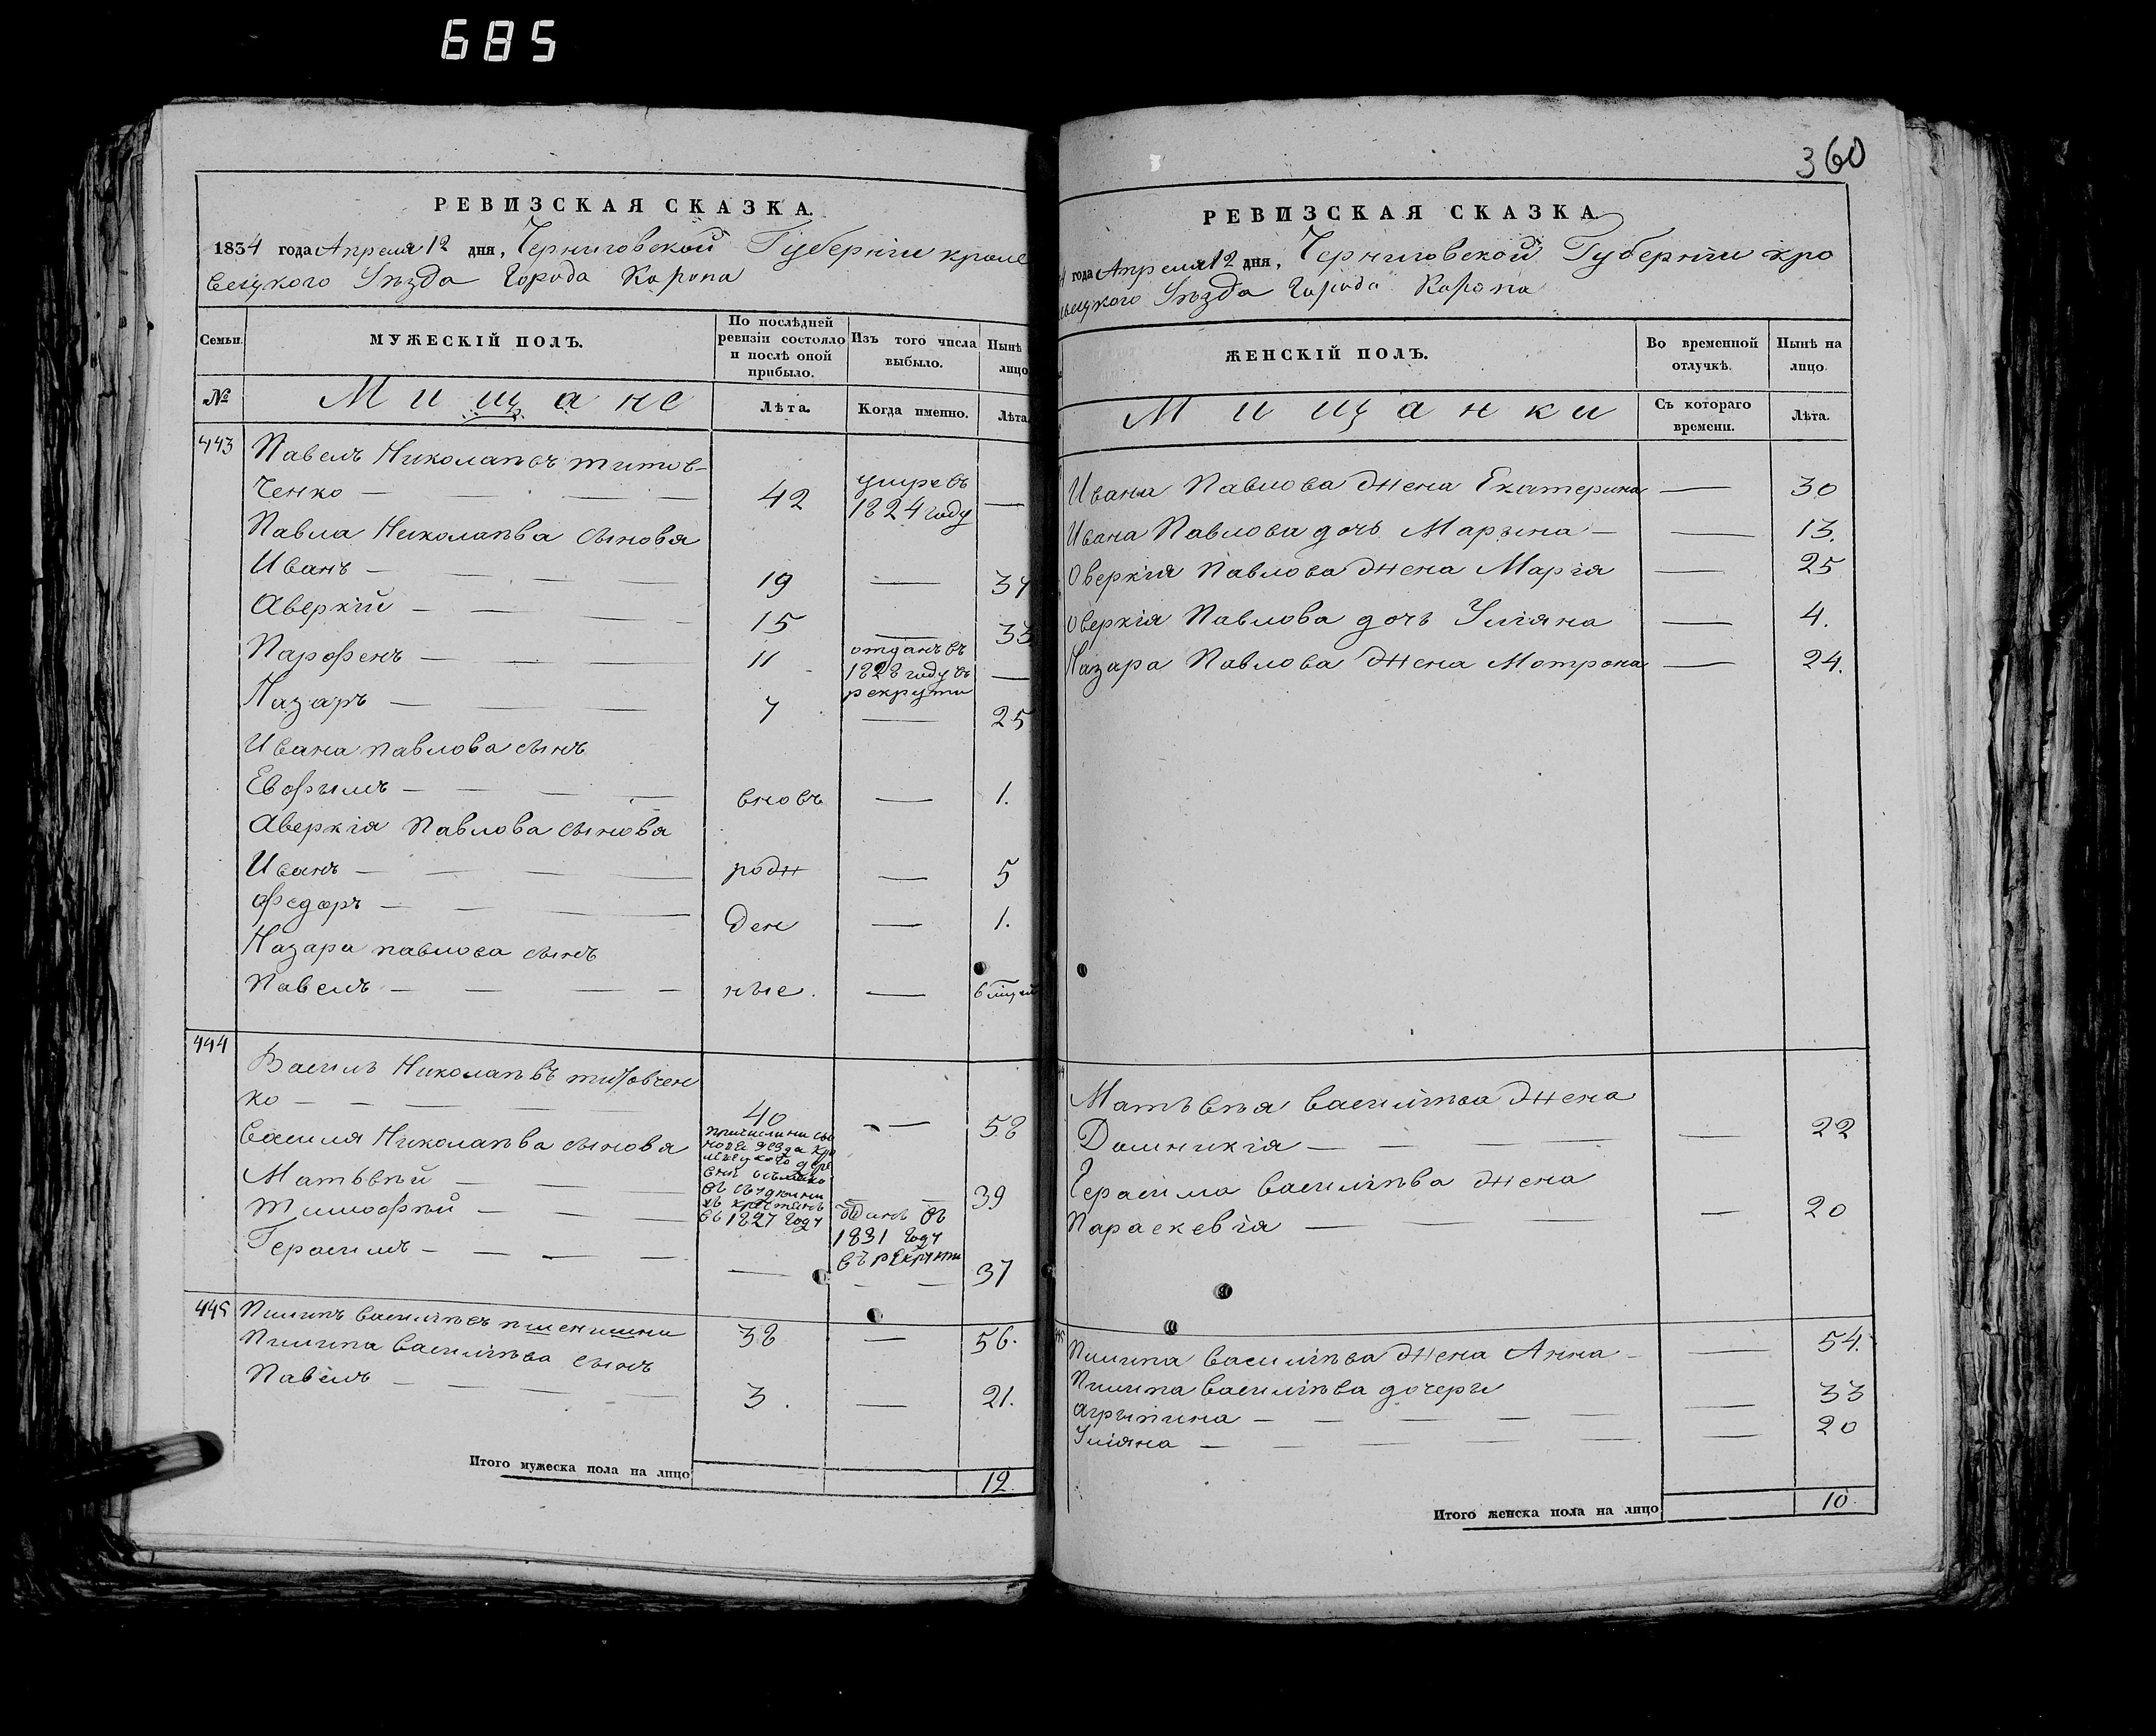 685
РЕВИЗСКАЯ СКАЗКА.
1834 года Апреля 12 дня, Черниговской Губерніи кроле
вецкого Уѣзда Города Коропа
Семьи.
МУЖЕСКІЙ ПОЛЪ.
По послѣдней ревизіи состояло и послѣ оной прибыло.
Изъ того числа выбыло.
Нынѣ лицо
№
Мищане
Лѣта.
Когда именно.
Лѣта.
443
Павелъ Николаевъ титов-
ченко — 42 умре въ 1824 году —
Павла Николаѣва сыновя
Иванъ — 19 — 37
Аверкій — 15 — 33
Парфенъ — 11 отданъ въ 1828 году въ рекруты —
Назаръ — 7 — 25
Ивана павлова сынъ
Евфимъ — вновь — 1.
Аверкія Павлова сынова
Иванъ — рож — 5
Федоръ — ден — 1.
Назара павлова сынъ
Павелъ — ные. —
444
Василь Николаѣвъ титовчен
ко — 40 — 58
Василя Николаѣва сыновя
Матѣвѣй — 39
в 1827 году
Тимофѣй — отданъ въ 1831 году въ рекруты
Герасимъ — 37
445
Пилипъ Василіѣвъ пшенишни 38 — 56.
Пилипа Василіѣва сынъ
Павелъ — 3. — 21.
Итого мужеска пола на лицо 12.
360
РЕВИЗСКАЯ СКАЗКА
4 года Апреля 12 дня, Черниговской Губерніи кро
левецкого Уѣзда Города Коропа
ЖЕНСКІЙ ПОЛЪ.
Во временной отлучкѣ.
Нынѣ на лицо
Мищанки
Съ котораго времени.
Лѣта.
Ивана Павлова жена Екатерина — 30
Ивана Павлова дочь Марына — 13.
Оверкія Павлова жена Марія — 25
Оверкія Павлова дочь Уліяна — 4.
Назара Павлова жена Мотрона — 24.
Матѣвѣя Василіѣва жена
Домникія — 22
Герасима Василіѣва жена
Параскевія — 20
Пилипа Василіѣва жена Анна — 54.
Пилипа Василіѣва дочери
Агрыпина — 33
Уліяна — 20
Итого женска пола на лицо 10.